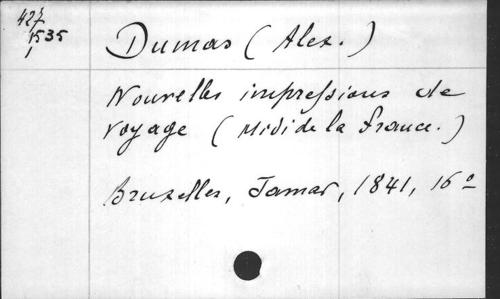 427
1535
1
Dumas (Alex.)
Nouvelles impressions de
voyage (Midi de la France.)
Bruxelles, Jamar, 1841, 16º